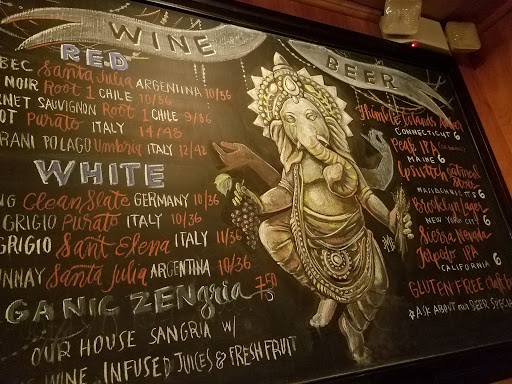 WINE
RED
BEC Santa Julia ARGENTINA 10/36
NOIR Root 1 CHILE 10/36
RNET SAUVIGNON Root 1 CHILE 9/36
OT Purato ITALY 14/43
RANI POLAGO Umbria ITALY 12/42
WHITE
NG Clean Slate GERMANY 10/36
GRIGIO Purato ITALY 10/36
GRIGIO Sant Elena ITALY 11/36
NNAY Santa Julia ARGENTINA 10/36
GANIC ZENgria 7.50
OUR HOUSE SANGRIA W/
WINE, INFUSED JUICES & FRESH FRUIT
BEER
Thimble Islands
CONNECTICUT 6
Peak IPA
MAINE 6
Ipswich Oatmeal
MASSACHUSETTS 6
Brooklyn Lager
NEW YORK CITY 6
Sierra Nevada
Torpedo IPA
CALIFORNIA 6
GLUTEN FREE
*ASK ABOUT OUR BEER SPECIA